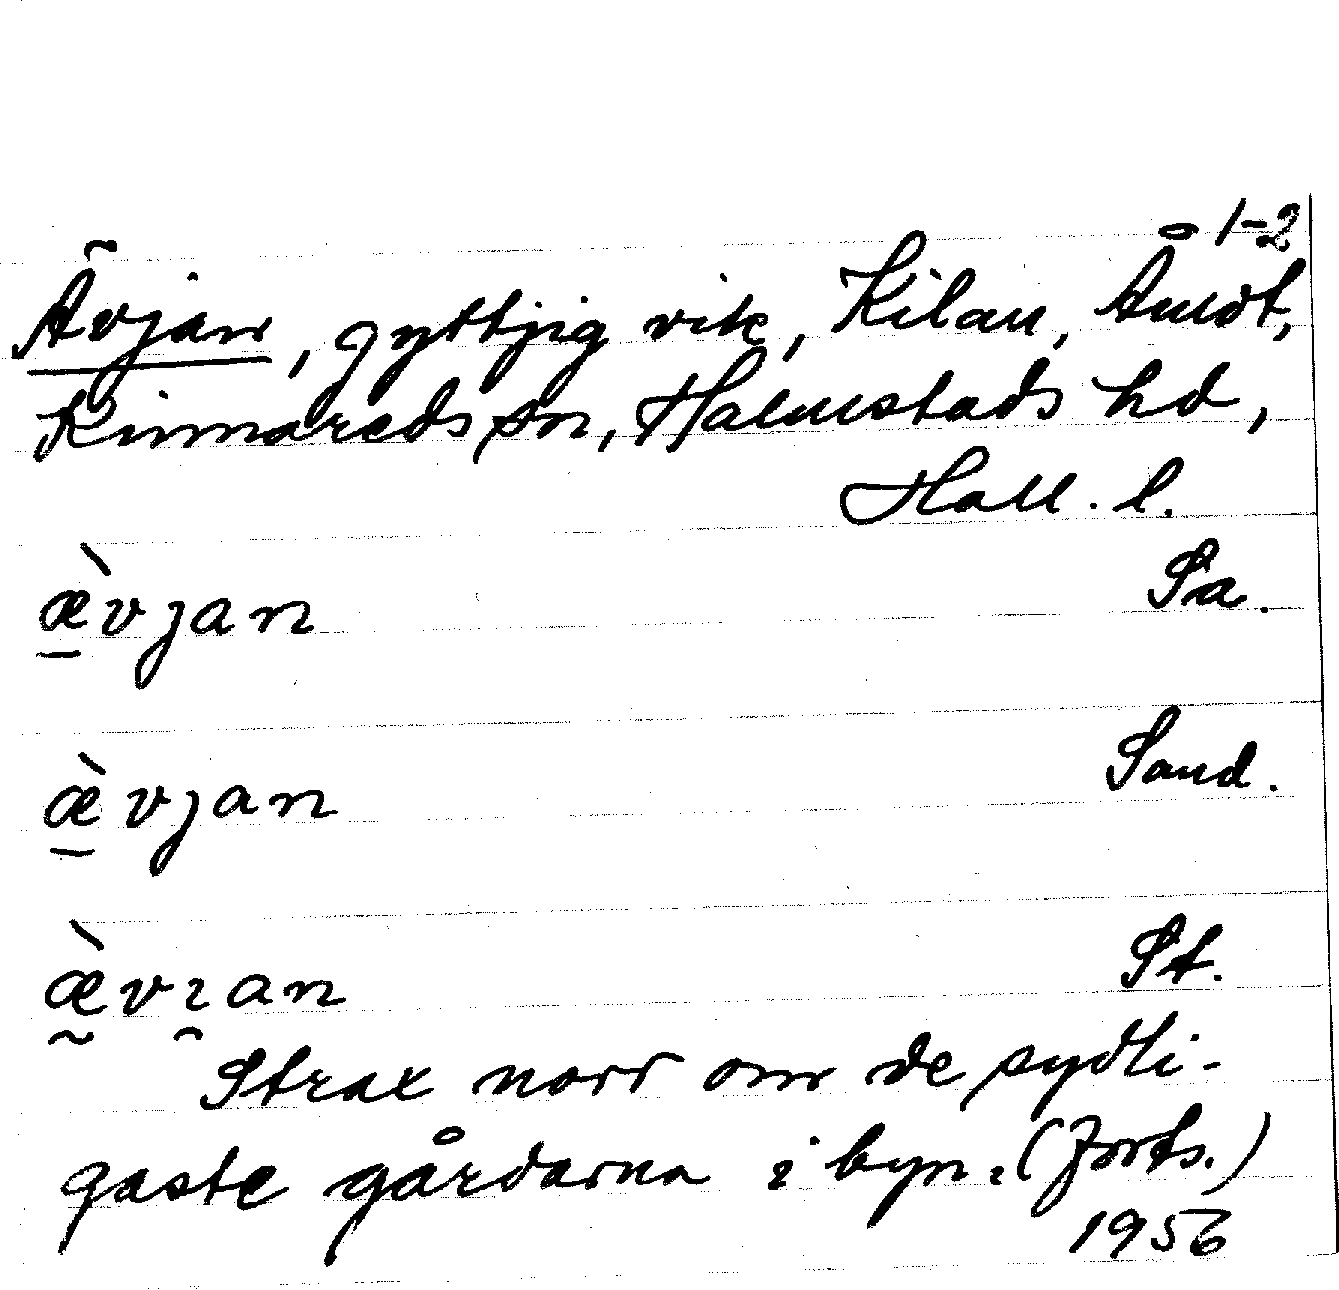 1-2
Ävjan, gyttjig vik, Kilan, Åmot,
Kinnareds sn, Halmstads hd,
Hall. l.
æ̠̀vjan Sa.
æ̠̀vjan Sand.
æ̰̀vı̯an St.
Strax norr om de sydli-
gaste gårdarna i byn. (Forts.)
1956